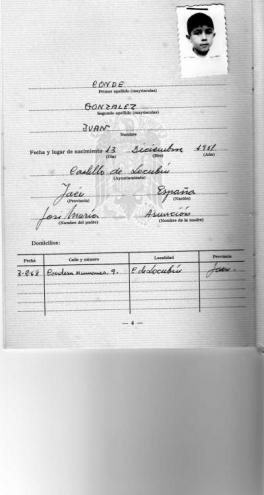 CONDE
Primer apellido (mayúsculas)
GONZALEZ
Segundo apellido (mayúsculas)
JUAN
Nombre
Fecha y lugar de nacimiento 13 Diciembre
(Día) (Mes) (Año)
Castillo de Locubín
(Ayuntamiento)
Jaén España
(Provincia) (Nación)
José María Asunción
(Nombre del padre) (Nombre de la madre)
Domicilios:
Fecha Calle y número Localidad Provincia
9. C. de Locubín Jaén.
— 4 —